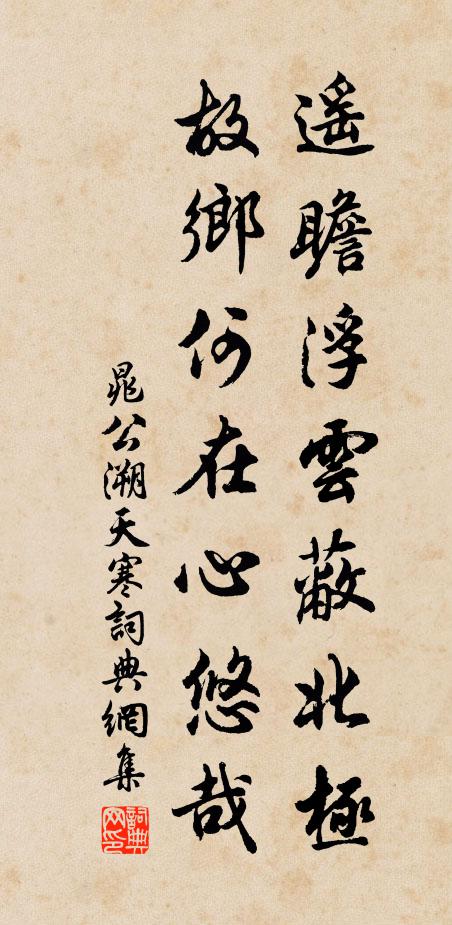 遥瞻浮雲蔽北極
故鄉何在心悠哉
晁公溯天寒詞典網集
詞典网印